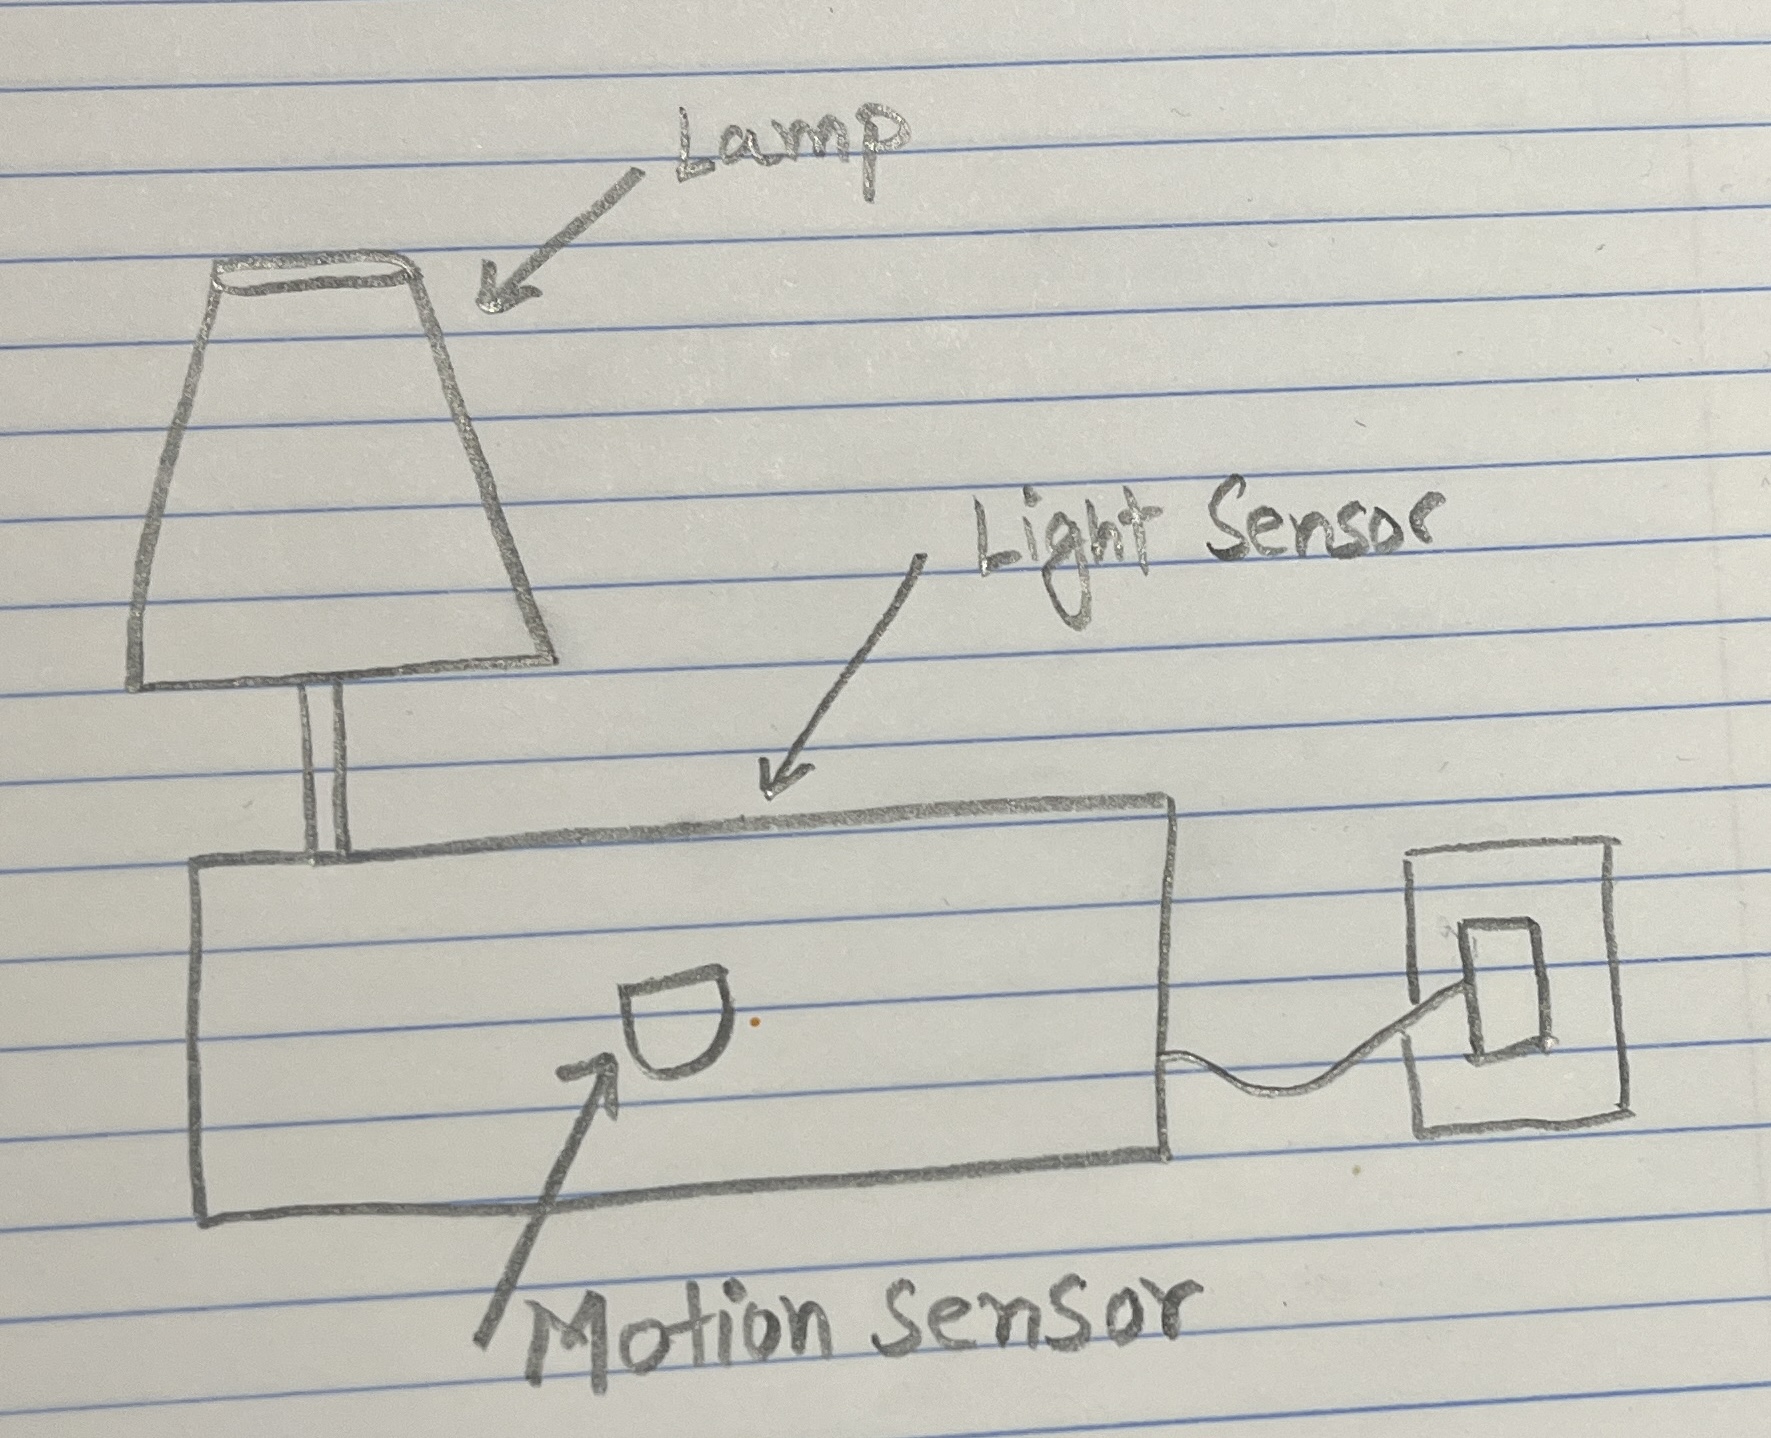 Lamp
Light Sensor
Motion Sensor